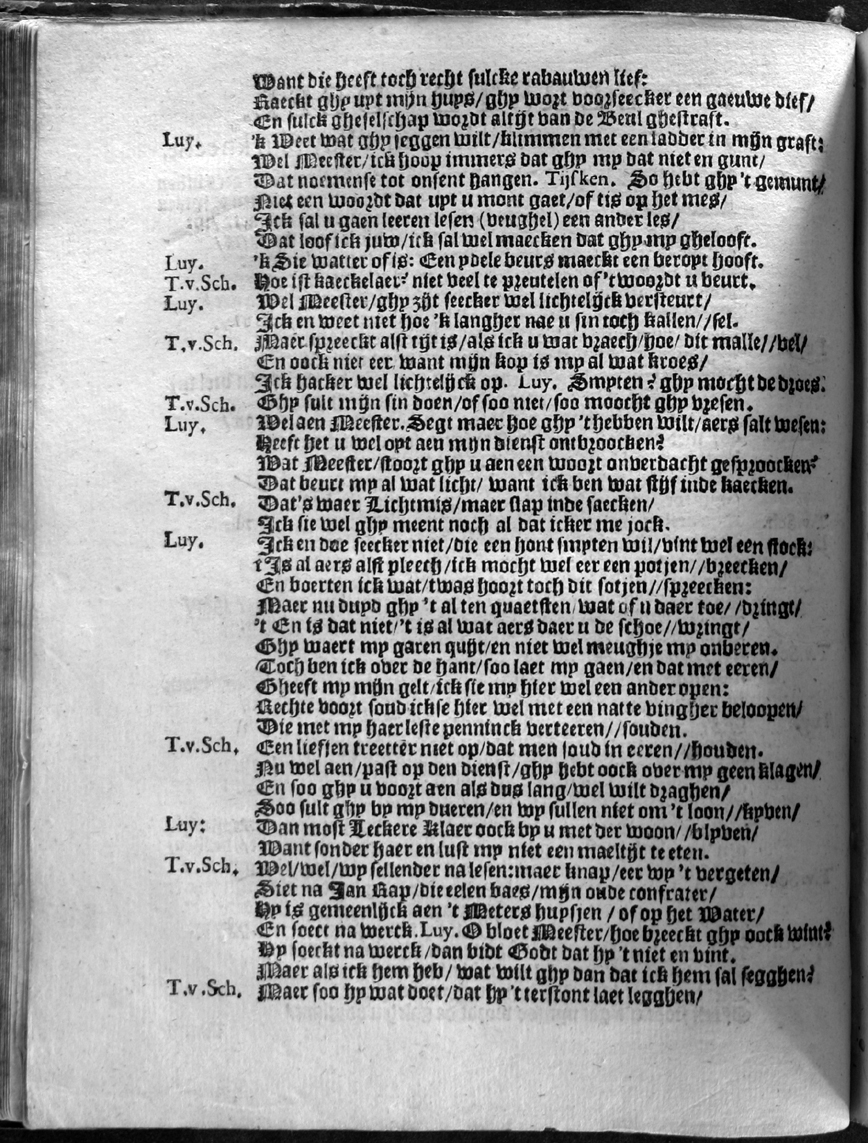 Want die heeft toch recht sulcke rabauwen lief:
Raeckt ghy uyt mijn huys/ghy wort voorseecker een gaeuwe dief/
En sulck gheselschap wordt altijt van de Beul ghestraft.
Luy. 'k Weet wat ghy seggen wilt/klimmen met een ladder in mijn graft:
Wel Meester/ick hoop immers dat ghy my dat niet en gunt/
Dat noemense tot onsent hangen. Tijsken. So hebt ghy 't gemunt/
Niet een woordt dat uyt u mont gaet/of tis op het mes/
Ick sal u gaen leeren lesen (veughel) een ander les/
Dat loof ick juw/ick sal wel maecken dat ghy my ghelooft.
Luy. 'k Sie watter of is: Een ydele beurs maeckt een beroyt hooft.
T.v.Sch. Hoe ist kaeckelaer? niet veel te preutelen of 't woordt u beurt.
Luy. Wel Meester/ghy zijt seecker wel lichtelijck versteurt/
Ick en weet niet hoe 'k langher nae u sin toch kallen//sel.
T.v.Sch. Maer spreeckt alst tijt is/als ick u wat vraech/hoe/ dit malle//vel/
En oock niet eer, want mijn kop is my al wat kroes/
Ick hacker wel lichtelijck op. Luy. Smyten? ghy mocht de droes.
T.v.Sch. Ghy sult mijn sin doen/of soo niet/soo moocht ghy vresen.
Luy. Wel aen Meester. Segt maer hoe ghy 't hebben wilt/aers salt wesen:
Heeft het u wel oyt aen mijn dienst ontbroocken?
Wat Meester/stoort ghy u aen een woort onverdacht gesproocken?
Dat beurt my al wat licht/ want ick ben wat stijf inde kaecken.
T.v.Sch. Dat's waer Lichtmis/maer slap inde saecken/
Ick sie wel ghy meent noch al dat icker me jock.
Luy. Ick en doe seecker niet/die een hont smyten wil/vint wel een stock:
t Is al aers alst pleech/ick mocht wel eer een potjen//breecken/
En boerten ick wat/twas hoort toch dit sotjen//spreecken:
Maer nu duyd ghy 't al ten quaetsten/wat of u daer toe//dringt/
't En is dat niet/'t is al wat aers daer u de schoe//wringt/
Ghy waert my garen quijt/en niet wel meughje my onberen.
Toch ben ick over de hant/soo laet my gaen/en dat met eeren/
Gheeft my mijn gelt/ick sie my hier wel een ander open:
Rechte voort soud ickse hier wel met een natte vingher beloopen/
Die met my haer leste penninck verteeren//souden.
T.v.Sch. Een liefjen treetter niet op/dat men soud in eeren//houden.
Nu wel aen/past op den dienst/ghy hebt oock over my geen klagen/
En soo ghy u voort aen als dus lang/wel wilt draghen/
Soo sult ghy by my dueren/en wy sullen niet om 't loon//kyven/
Luy: Dan most Leckere Klaer oock by u met der woon//blyven/
Want sonder haer en lust my niet een maeltijt te eten.
T.v.Sch. Wel/wel/wy sellender na lesen: maer knap/eer wy 't vergeten/
Siet na Jan Rap/die eelen baes/mijn oude confrater/
Hy is gemeenlijck aen 't Meters huysjen / of op het Water/
En soect na werck. Luy. O bloet Meester/hoe breeckt ghy oock wint?
Hy soeckt na werck/dan bidt Godt dat hy 't niet en vint.
Maer als ick hem heb/ wat wilt ghy dan dat ick hem sal segghen?
T.v.Sch. Maer soo hy wat doet/dat hy 't terstont laet legghen/